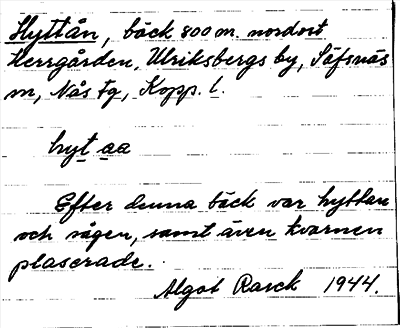 Hyttån, bäck 800 m. nordost
Herrgården, Ulriksbergs by, Säfsnäs
sn, Nås tg, Kopp. l.
hyt aa
Efter denna bäck var hyttan
och sågen, samt även kvarnen
plaserade.
Algot Rasck 1944.